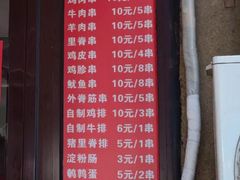 鸡肉串 10元/5串
牛肉串 10元/5串
羊肉串 10元/5串
里脊串 10元/5串
鸡皮串 10元/4串
鸡胗串 10元/8串
鱿鱼串 10元/8串
外脊筋串 10元/5串
自制鸡排 10元/3串
自制牛排 6元/1串
猪里脊排 5元/1串
淀粉肠 3元/1串
鹌鹑蛋 5元/2串